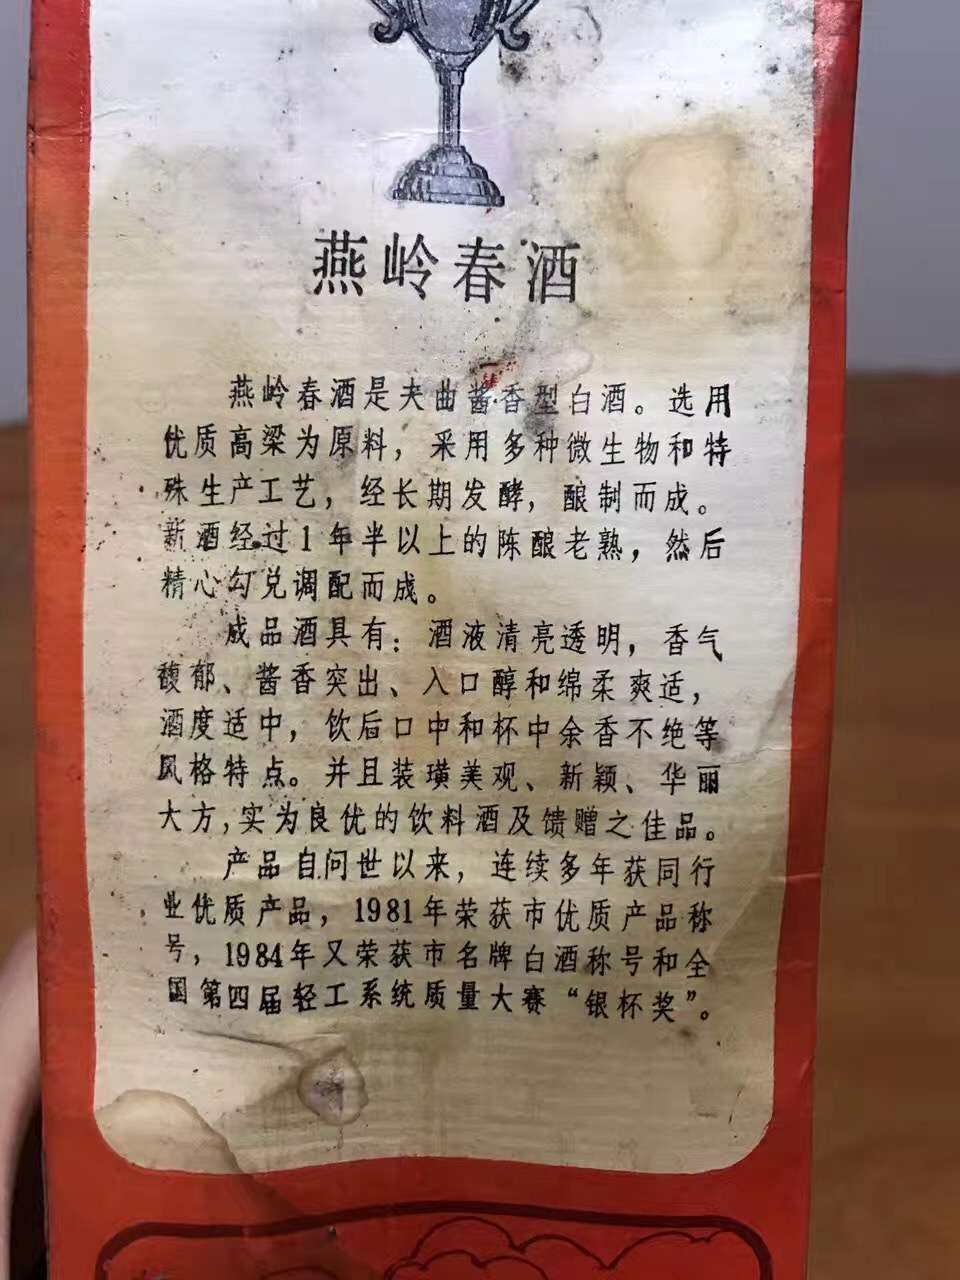 燕岭春酒
燕岭春酒是夫曲酱香型白酒。选用
优质高梁为原料，采用多种微生物和特
殊生产工艺，经长期发酵，酿制而成。
新酒经过1年半以上的陈酿老熟，然后
精心勾兑调配而成。
成品酒具有：酒液清亮透明，香气
馥郁、酱香突出、入口醇和绵柔爽适，
酒度适中，饮后口中和杯中余香不绝等
风格特点。并且装璜美观、新颖、华丽
大方，实为良优的饮料酒及馈赠之佳品。
产品自问世以来，连续多年获同行
业优质产品，1981年荣获市优质产品称
号，1984年又荣获市名牌白酒称号和全
国第四届轻工系统质量大赛“银杯奖”。